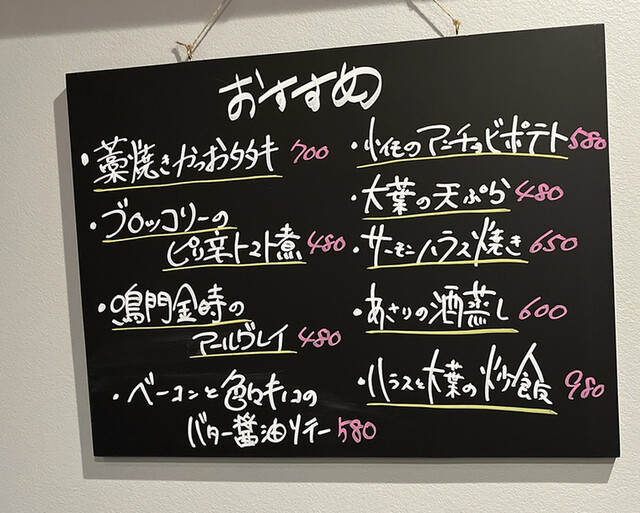 おすすめ
・藁焼きかつおタタキ 700
・ブロッコリーの
ピリ辛トマト煮 480
・鳴門金時の
アールグレイ 480
・ベーコンと色々キノコの
バター醤油ソテー 580
・小イモのアンチョビポテト 580
・大葉の天ぷら 480
・サーモンハラス焼き 650
・あさりの酒蒸し 600
・ハラスと大葉の炒飯 980